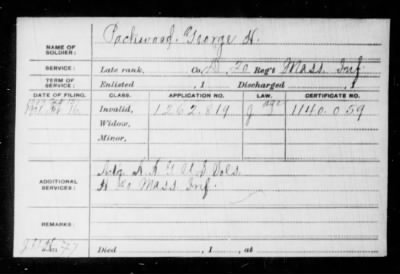 NAME OF SOLDIER: Packwood, George H.
SERVICE: Late rank, Co. D, 20 Reg't Mass. Inf.
TERM OF SERVICE: Enlisted , 1 Discharged , 1
DATE OF FILING. CLASS. APPLICATION NO. LAW. CERTIFICATE NO.
Invalid, 1262.819 age 1140.059
Widow,
Minor,
ADDITIONAL SERVICES: U S Vols
H 20 Mass Inf.
REMARKS:
Died , 1 , at